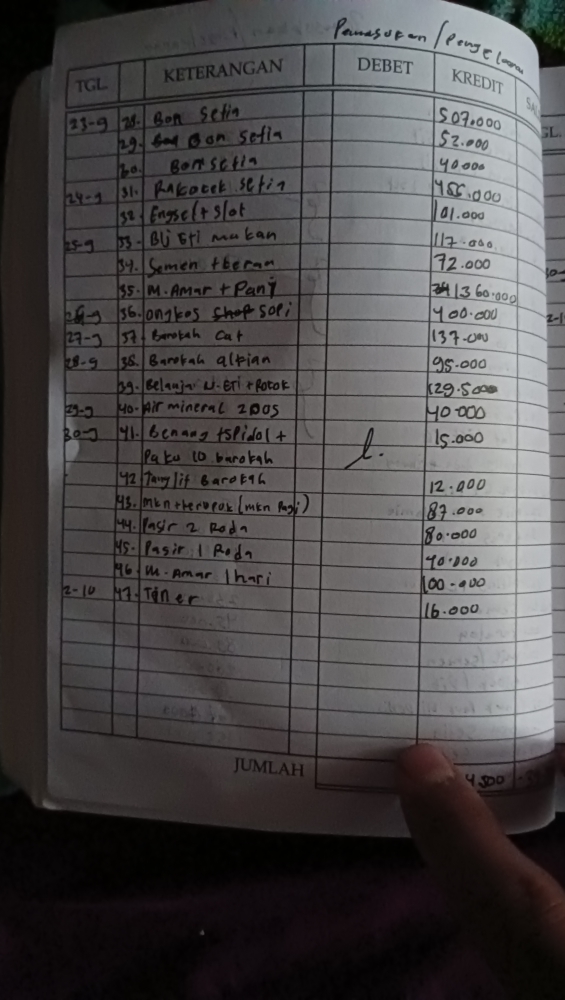 Pemasukan / Pengeluaran
TGL. KETERANGAN DEBET KREDIT
23-9 28. Bon Setia 507.000
29. Bon Setia 52.000
30. Bon Setia 40.000
24-9 31. Setia
32. Engsel + Slot 101.000
25-9 33. Bli Eti makan 117.000
34. Semen 72.000
35. M. Amar + Panji 1360.000
26-9 36. ongkos Sopi 400.000
27-9 37. Barokah Cat 137.000
28-9 38. Barokah 95.000
39. Belanja Eti + Rotok
29-9 40. Air mineral 2 DOS 40.000
30-9 41. Benang + Spidol + 15.000
Paku 10 barokah
42. Barokah 12.000
43. Mkn + kerupuk (mkn Pagi) 87.000
44. Pasir 2 Roda 80.000
45. Pasir 1 Roda 40.000
46. M. Amar 1 hari 100.000
2-10 47. Tiner 16.000
JUMLAH